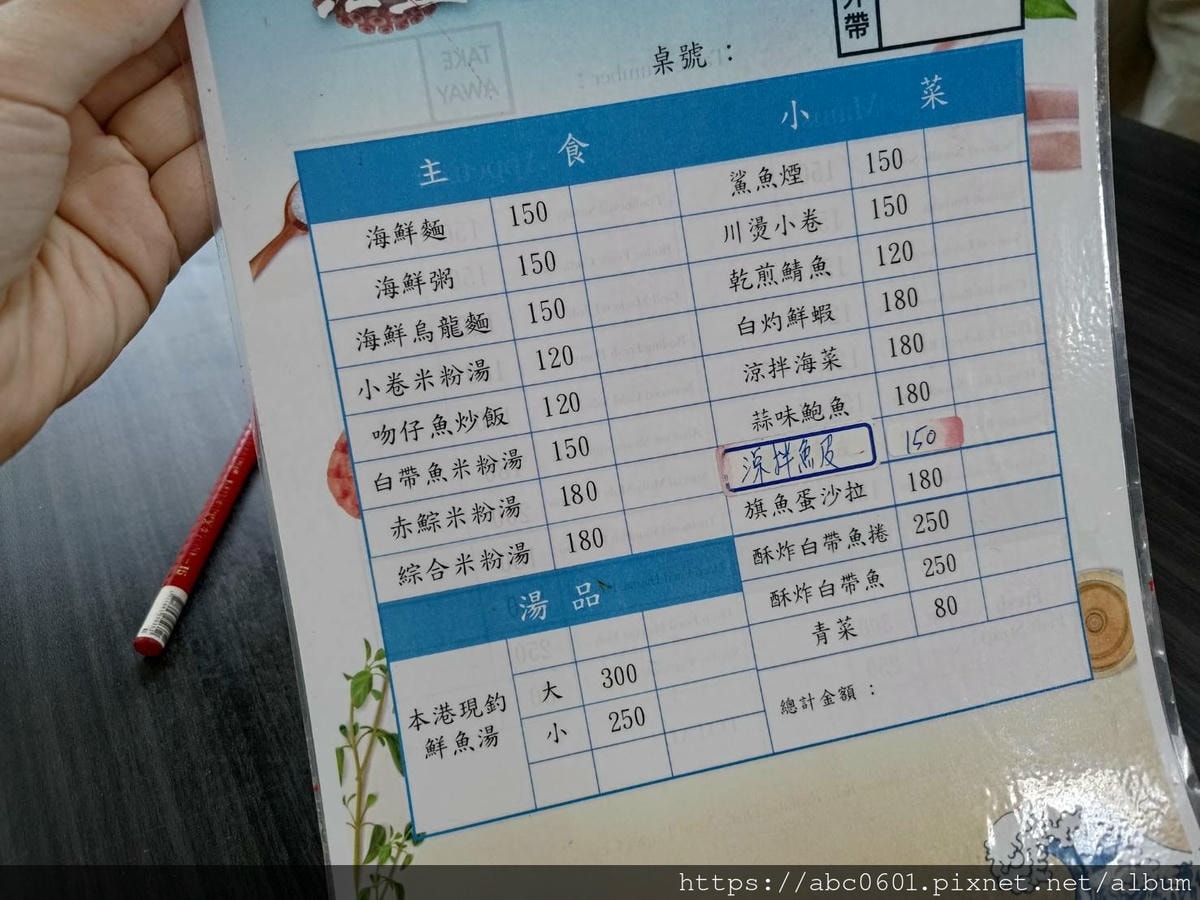 外帶
桌號：
TAKE AWAY
主食
海鮮麵 150
海鮮粥 150
海鮮烏龍麵 150
小卷米粉湯 120
吻仔魚炒飯 120
白帶魚米粉湯 150
赤鯮米粉湯 180
綜合米粉湯 180
湯品
本港現釣鮮魚湯
大 300
小 250
小菜
鯊魚煙 150
川燙小卷 150
乾煎鯖魚 120
白灼鮮蝦 180
涼拌海菜 180
蒜味鮑魚 180
涼拌魚皮 150
旗魚蛋沙拉 180
酥炸白帶魚捲 250
酥炸白帶魚 250
青菜 80
總計金額：
https://abc0601.pixnet.net/album